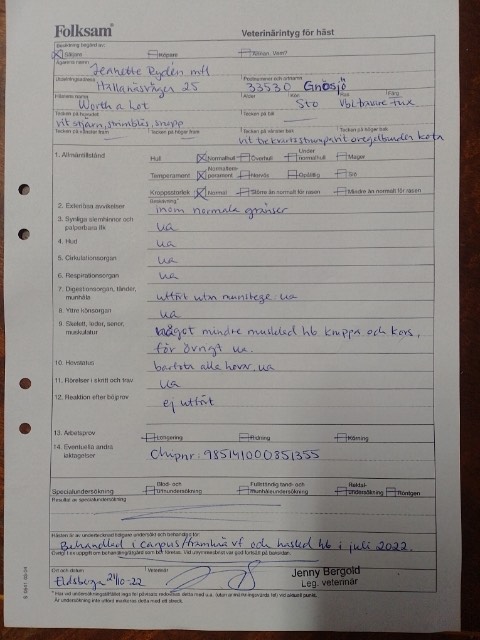 Folksam
Veterinärintyg för häst
Besiktning begärd av:
Säljare
Köpare
Annan. Vem?
Ägarens namn
Jeannette Rydén mfl
Utdelningsadress
Hallanäsvägen 25
Postnummer och ortnamn
33530 Gnosjö
Hästens namn
Worth a lot
Ålder
Kön
Sto
Ras
Vbl travare
Färg
fux
Tecken på huvudet
vit stjärn, strimbläs, snopp
Tecken på bål
Tecken på vänster fram
Tecken på höger fram
Tecken på vänster bak
vit trekvartsstrumpa
Tecken på höger bak
vit oregelbunden kota
1. Allmäntillstånd
Hull
Normalhull
Överhull
Under normalhull
Mager
Temperament
Normaltemperament
Nervös
Opålitlig
Slö
Kroppsstorlek
Normal
Större än normalt för rasen
Mindre än normalt för rasen
Beskrivning*
2. Exteriöra avvikelser
inom normala gränser
3. Synliga slemhinnor och palperbara lfk
ua
4. Hud
ua
5. Cirkulationsorgan
ua
6. Respirationsorgan
ua
7. Digestionsorgan, tänder, munhåla
utfört utan munstege. ua
8. Yttre könsorgan
ua
9. Skelett, leder, senor, muskulatur
något mindre musklad hb kruppa och kors,
för övrigt ua.
10. Hovstatus
barfota alla hovar. ua
11. Rörelser i skritt och trav
ua
12. Reaktion efter böjprov
ej utfört
13. Arbetsprov
Longering
Ridning
Körning
14. Eventuella andra iakttagelser
Chipnr: 985141000851355
Specialundersökning
Blod- och urinundersökning
Fullständig tand- och munhåleundersökning
Rektalundersökning
Röntgen
Resultat av specialundersökning
Hästen är av undertecknad tidigare undersökt och behandlad för:
Behandlad i carpus/framknä vf och hasled hb i juli 2022.
Ort och datum
Eldsberga 21/10-22
Veterinär
Jenny Bergold
Leg. veterinär